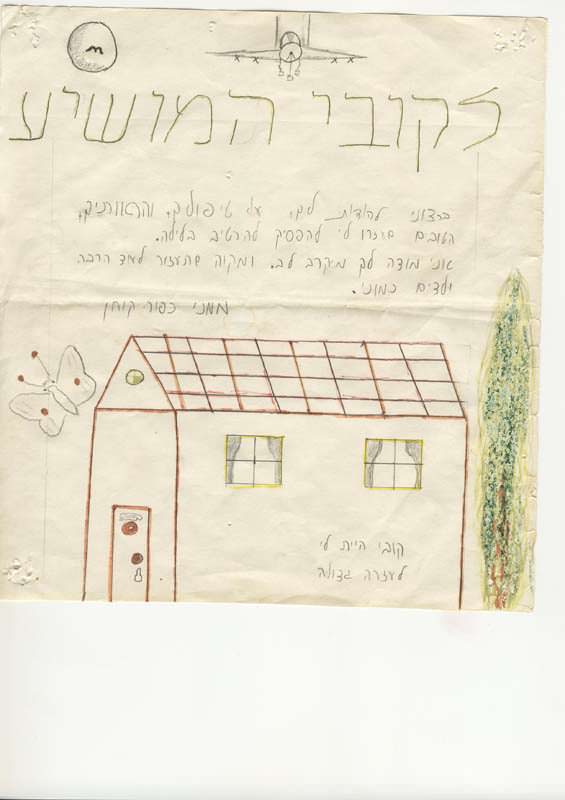 לקובי המושיע
ברצוני להודות לך, על טיפולך, והראותיך,
הטובים שעזרו לי להפסיק להרטיב בלילה.
אני מודה לך מקרב לב. ומקוה שתעזור לעוד הרבה
ילדים כמוני.
ממני כפור קוחן
קובי היית לי
לעזרה גדולה